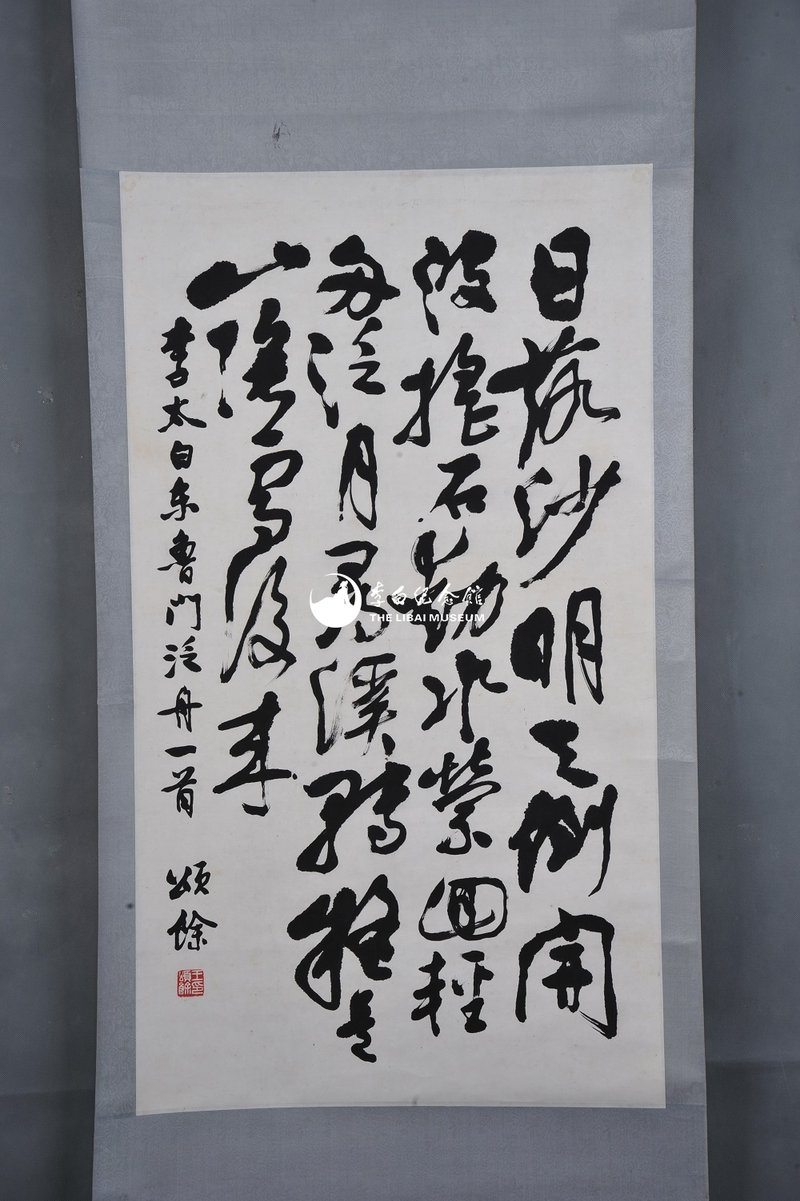 日落沙明天倒開
波搖石動水縈回輕
舟泛月尋溪轉疑是
山陰雪後來
李太白东魯門泛舟一首
頌餘
王印
頌餘
李白纪念館
THE LIBAI MUSEUM